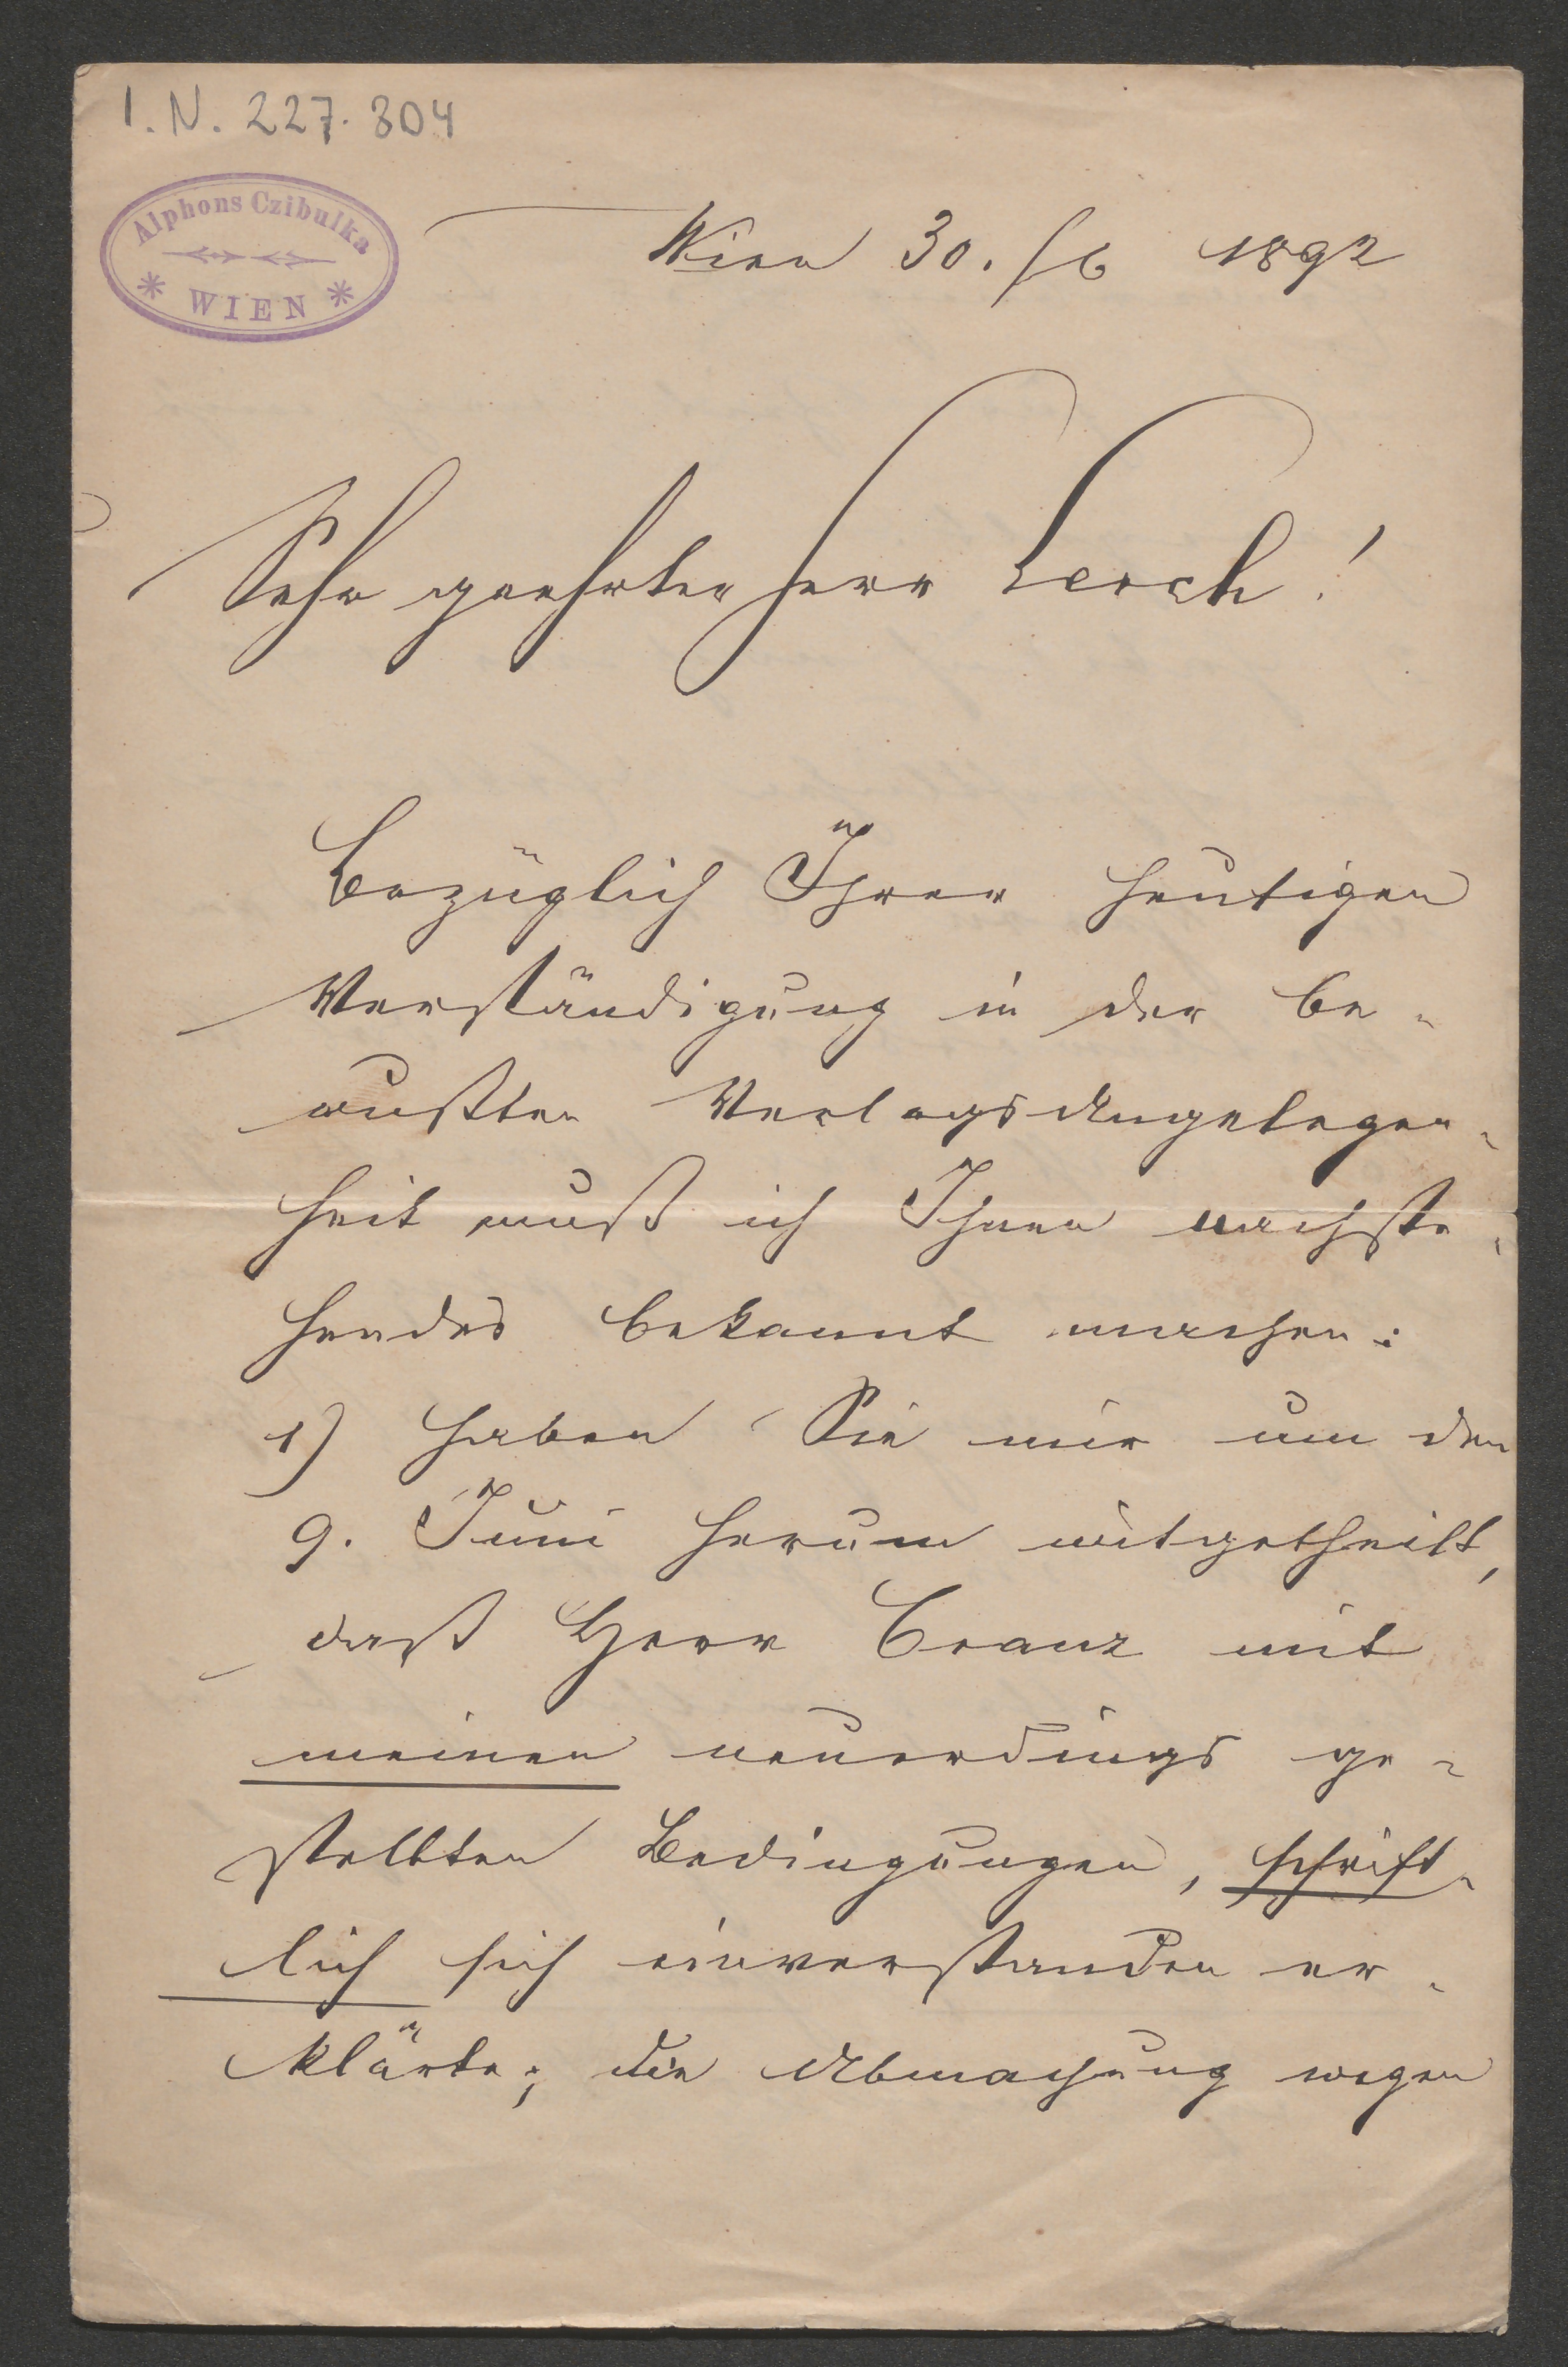 I.N. 227.304
Alphons Czibulka
WIEN
Wien 30./6 1892
Sehr geehrter Herr Lerch!
Bezüglich Ihrer heutigen
Verständigung in der be-
wußten Verlagsangelegen-
heit muß ich Ihnen nachste-
hendes bekannt machen:
1) Haben Sie mir um den
9. Juni herum mitgetheilt,
daß Herr Cranz mit
meinen neuerdings ge-
stellten Bedingungen, schrift-
lich sich einverstanden er-
klärte; die Abmachung wegen